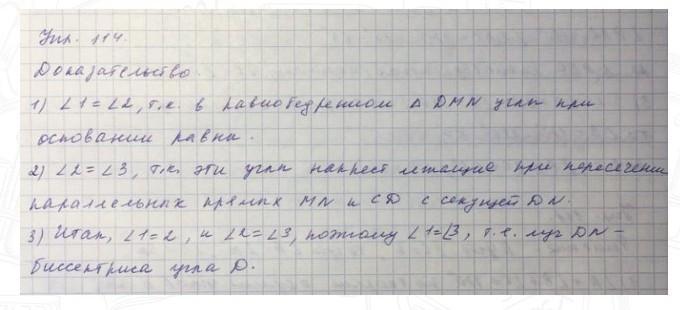 Упр. 114.
Доказательство.
1) ∠1=∠2, т.к. в равнобедренном Δ DMN углы при
основании равны.
2) ∠2=∠3, т.к. эти углы накрест лежащие при пересечении
параллельных прямых MN и CD с секущей DN.
3) Итак, ∠1=2, и ∠2=∠3, поэтому ∠1=∠3, т.е. луч DN-
биссектриса угла D.